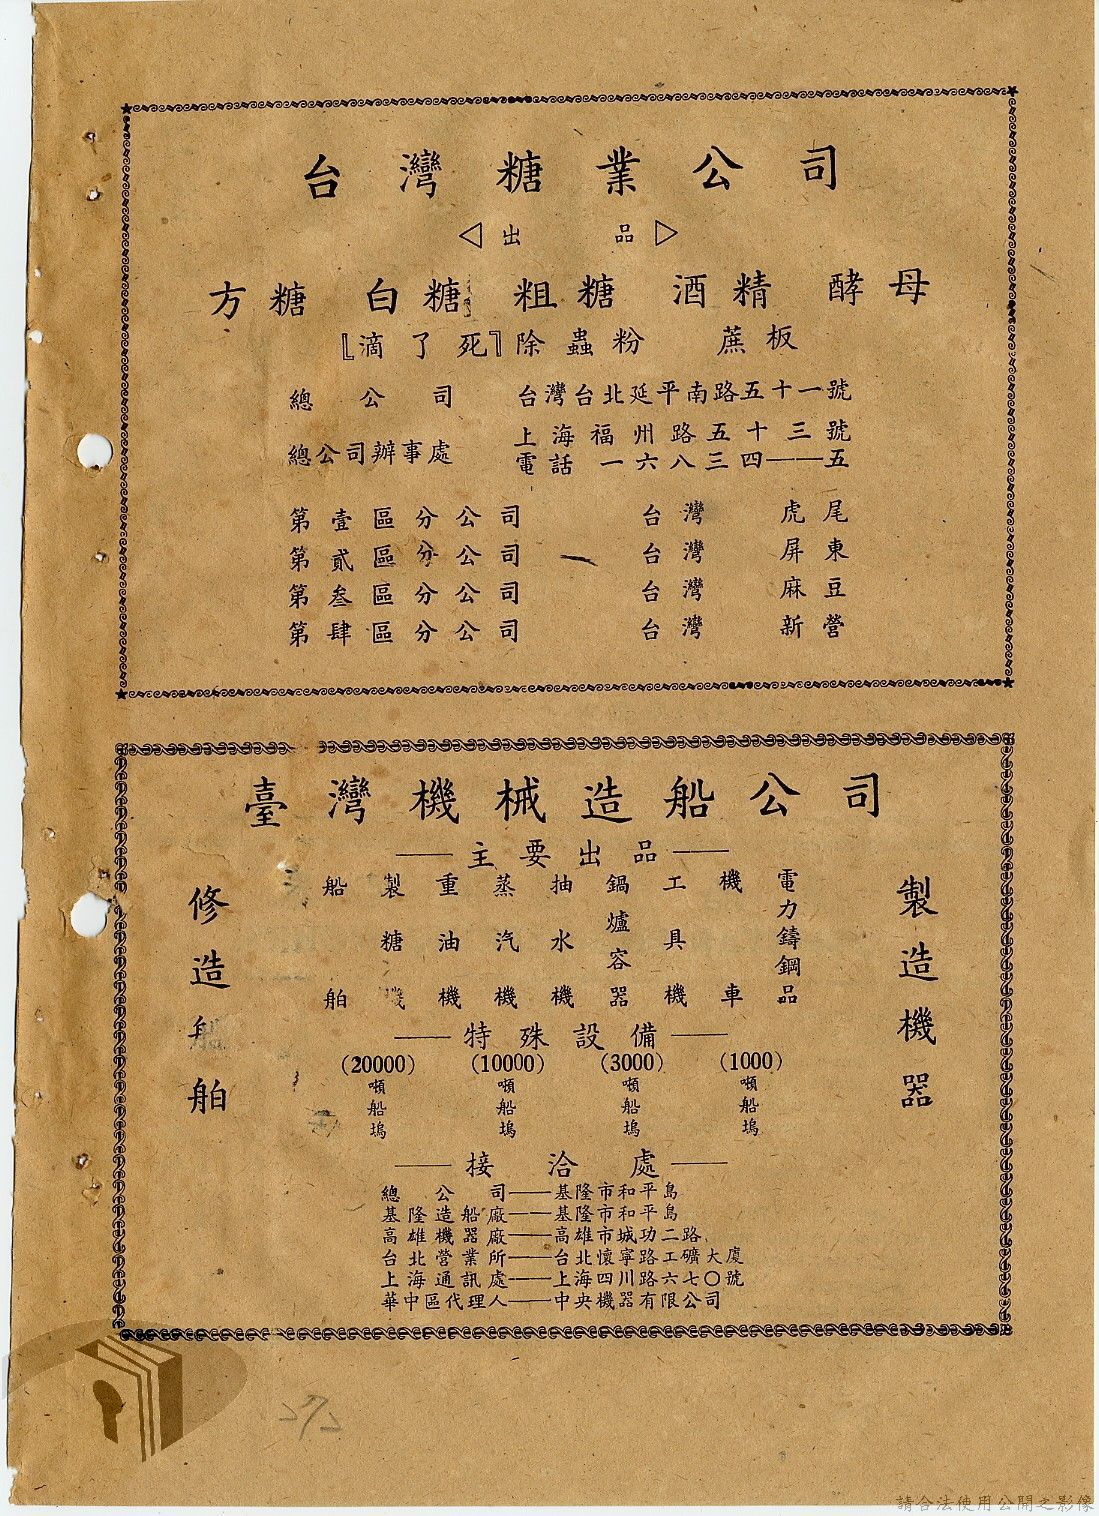 台灣糖業公司
出品
方糖 白糖 粗糖 酒精 酵母
〖滴了死〗除蟲粉 蔗板
總公司 台灣台北延平南路五十一號
總公司辦事處 上海福州路五十三號
電話一六八三四——五
第壹區分公司 台灣 虎尾
第貳區分公司 台灣 屏東
第叁區分公司 台灣 麻豆
第肆區分公司 台灣 新營
臺灣機械造船公司
——主要出品——
製造機器
電力鑄鋼品
機車
工具機
鍋爐容器
抽水機
蒸汽機
重油機
製糖機
船舶
修造船舶
——特殊設備——
(20000)噸船塢
(10000)噸船塢
(3000)噸船塢
(1000)噸船塢
——接洽處——
總公司——基隆市和平島
基隆造船廠——基隆市和平島
高雄機器廠——高雄市城功二路
台北營業所——台北懷寧路工礦大廈
上海通訊處——上海四川路六七〇號
華中區代理人——中央機器有限公司
請合法使用公開之影像